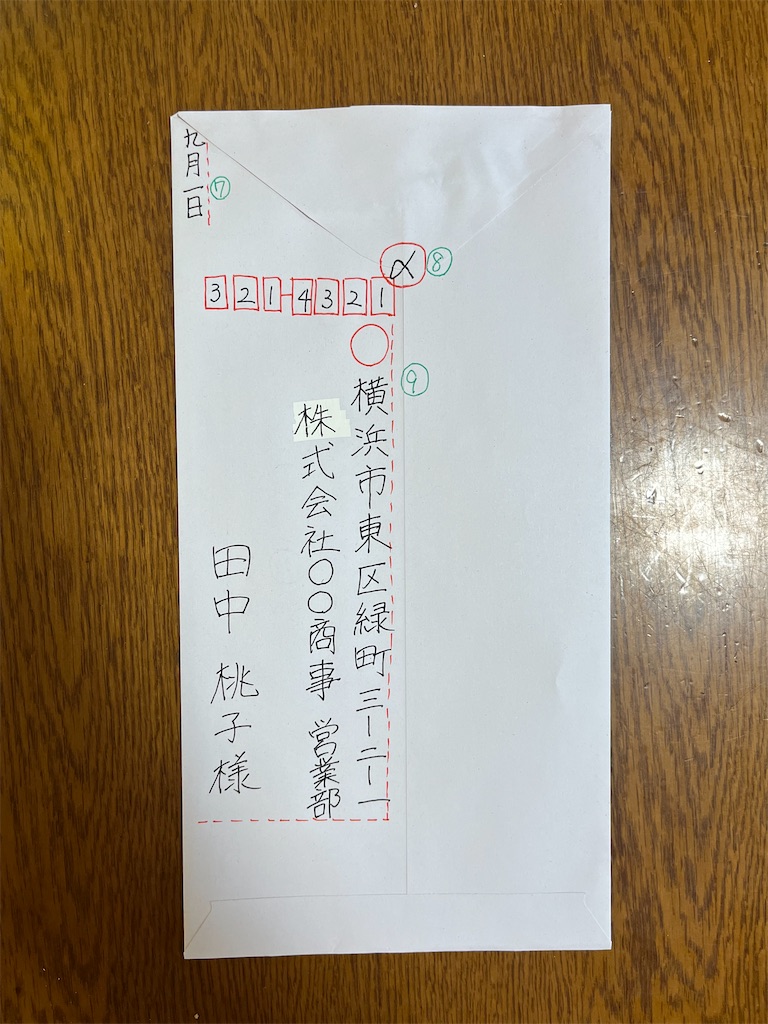 九月一日
⑦
〆
⑧
321-4321
⑨
横浜市東区緑町三ー二ー一
株式会社〇〇商事 営業部
田中 桃子様